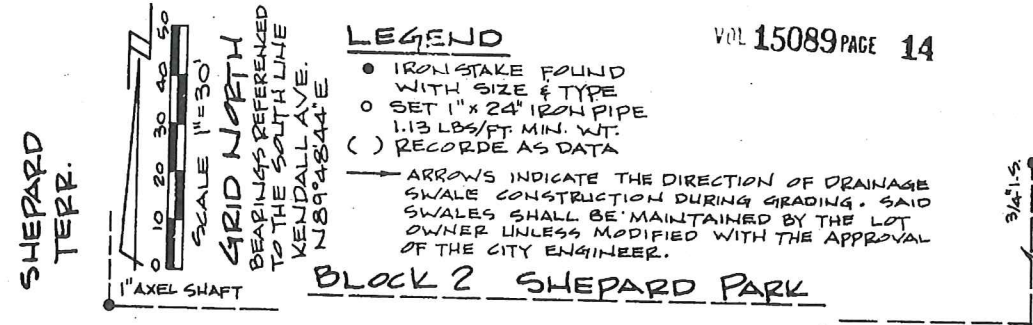 VOL 15089 PAGE 14
SHEPARD
TERR.
0 10 20 30 40 50
SCALE 1"=30'
GRID NORTH
BEARINGS REFERENCED
TO THE SOUTH LINE
KENDALL AVE.
N89°48'44"E
1" AXEL SHAFT
LEGEND
● IRON STAKE FOUND
WITH SIZE & TYPE
○ SET 1" x 24" IRON PIPE
1.13 LBS/FT. MIN. WT.
( ) RECORDE AS DATA
→ ARROWS INDICATE THE DIRECTION OF DRAINAGE
SWALE CONSTRUCTION DURING GRADING. SAID
SWALES SHALL BE MAINTAINED BY THE LOT
OWNER UNLESS MODIFIED WITH THE APPROVAL
OF THE CITY ENGINEER.
BLOCK 2 SHEPARD PARK
3/4" I.S.